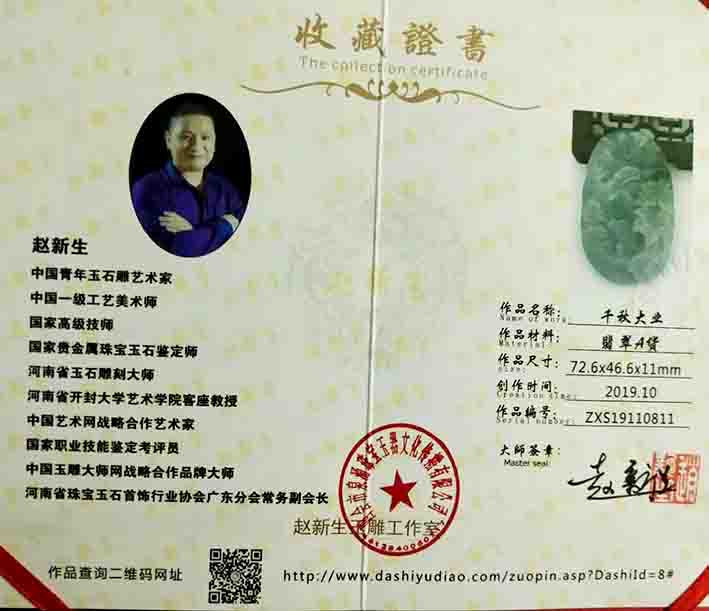 收藏證書
The collection certificate
赵新生
中国青年玉石雕艺术家
中国一级工艺美术师
国家高级技师
国家贵金属珠宝玉石鉴定师
河南省玉石雕刻大师
河南省开封大学艺术学院客座教授
中国艺术网战略合作艺术家
国家职业技能鉴定考评员
中国玉雕大师网战略合作品牌大师
河南省珠宝玉石首饰行业协会广东分会常务副会长
作品名称: 千秋大业
Name of work:
作品材料: 翡翠A货
Material:
作品尺寸: 72.6x46.6x11mm
size:
创作时间: 2019.10
Creation time:
作品编号: ZXS19110811
Serial number:
大师签章: 赵新生
Master seal:
赵新生玉雕工作室
作品查询二维码网址
http://www.dashiyudiao.com/zuopin.asp?DashiId=8#